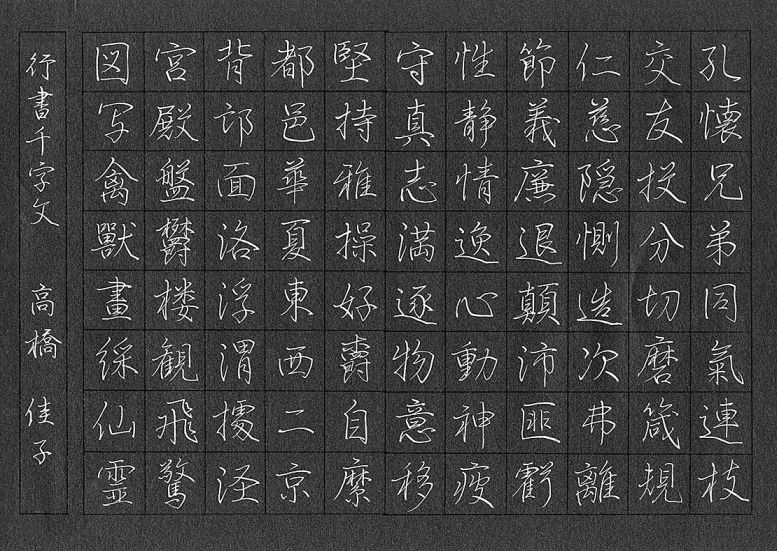 孔懐兄弟同氣連枝
交友投分切磨箴規
仁慈隠惻造次弗離
節義廉退顛沛匪虧
性静情逸心動神疲
守真志満逐物意移
堅持雅操好爵自縻
都邑華夏東西二京
背邙面洛浮渭據泾
宮殿盤欝楼観飛驚
図写禽獸畫綵仙靈
行書千字文 高橋 佳子